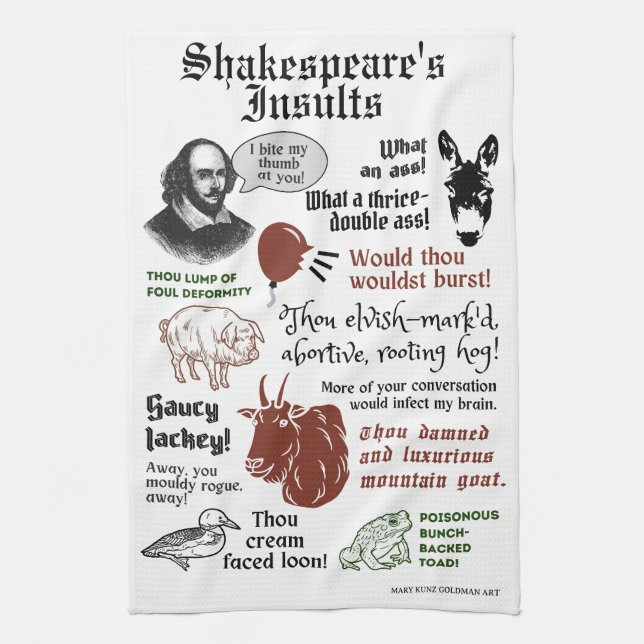 Shakespeare's
Insults
I bite my
thumb
at you!
What
an ass!
What a thrice-
double ass!
Would thou
wouldst burst!
THOU LUMP OF
FOUL DEFORMITY
Thou elvish-mark'd,
abortive, rooting hog!
More of your conversation
would infect my brain.
Saucy
lackey!
Thou damned
and luxurious
mountain goat.
Away, you
mouldy rogue,
away!
Thou
cream
faced loon!
POISONOUS
BUNCH-
BACKED
TOAD!
MARY KUNZ GOLDMAN ART